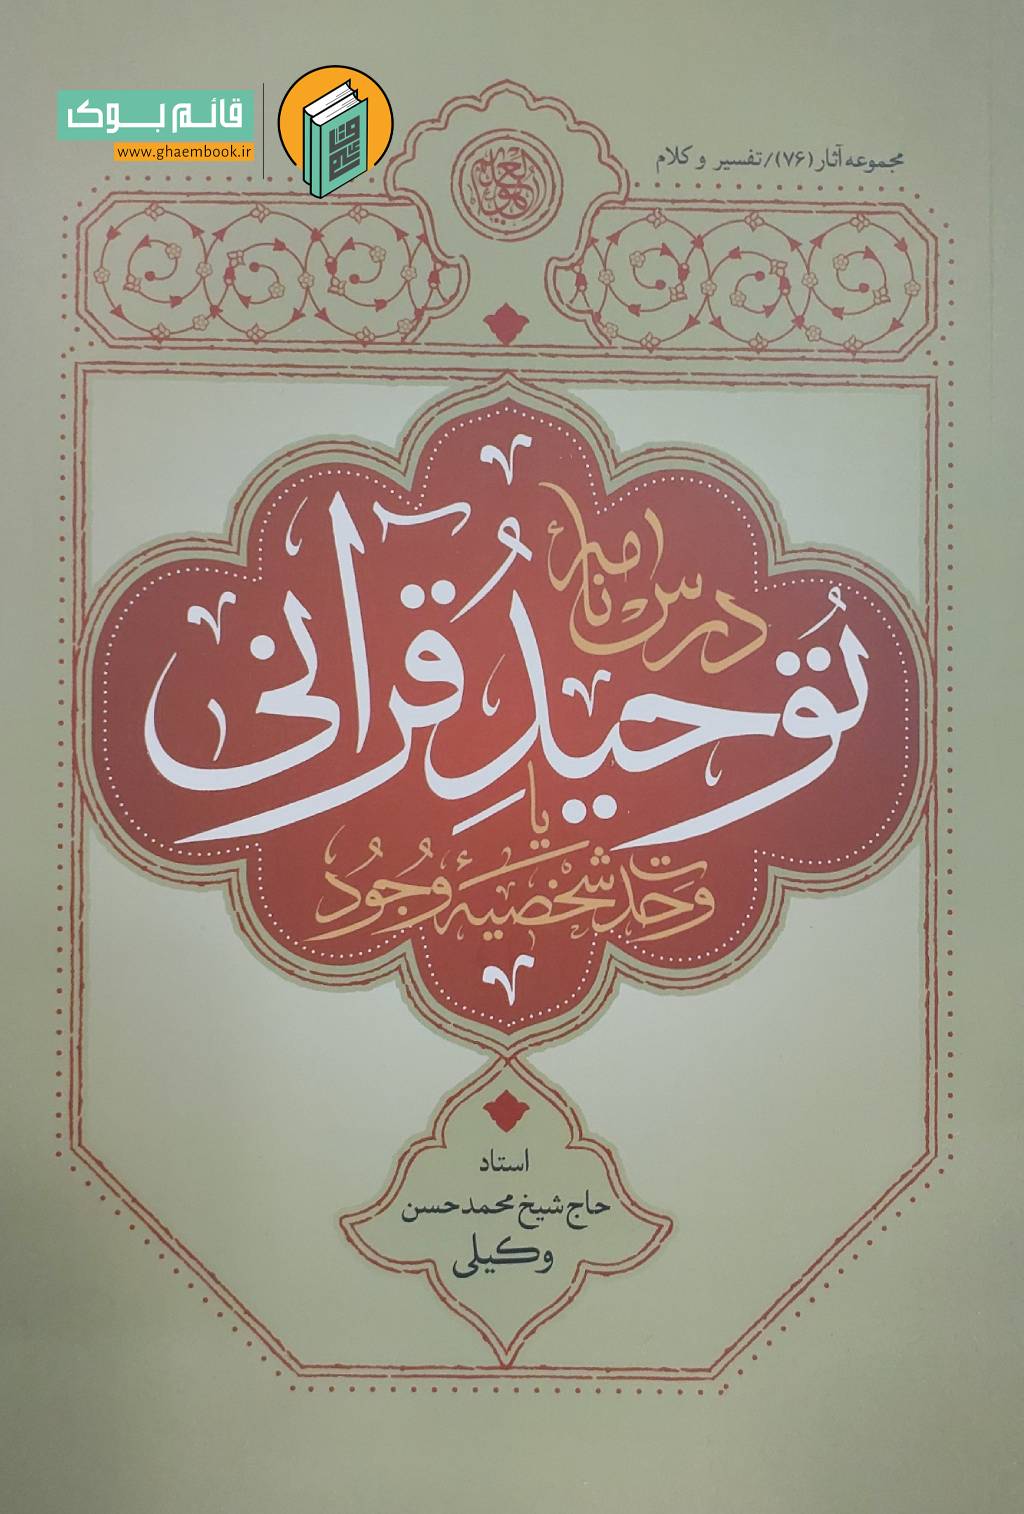 قائم بوک
www.ghaembook.ir
مجموعه آثار (۷۶)/ تفسیر و کلام
درس نامهٔ
توحیدِ قرآنی
یا
وحدت شخصیهٔ وجُود
استاد
حاج شیخ محمدحسن
وکیلی